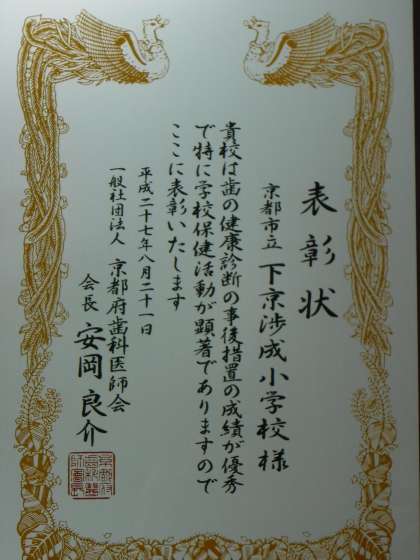 表彰状
京都市立 下京渉成小学校様
貴校は歯の健康診断の事後措置の成績が優秀
で特に学校保健活動が顕著でありますので
ここに表彰いたします
平成二十七年八月二十一日
一般社団法人 京都府歯科医師会
会長 安岡良介